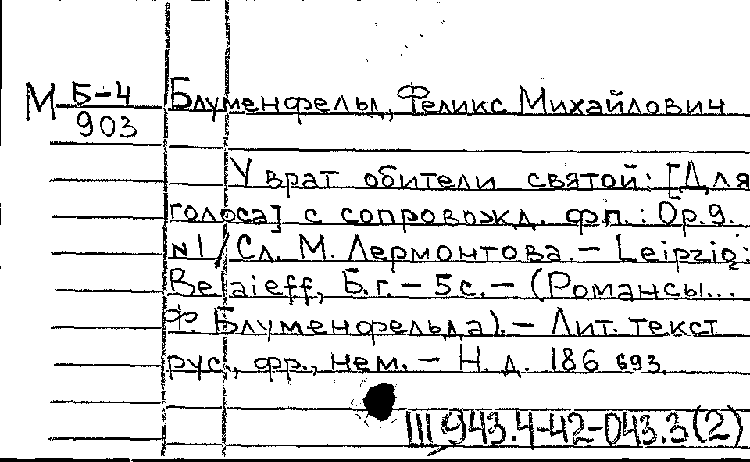 М Б-4 Блуменфельд, Феликс Михайлович
903
У врат обители святой: [Для
голоса] с сопровожд. фп.: Op.9.
N1 / Сл. М. Лермонтова. – Leipzig:
Belaieff, Б.г. – 5с. – (Романсы...
Ф Блуменфельда). – Лит. текст
рус., фр., нем. – Н. д. 186 693.
III 943.4-42-043.3(2)